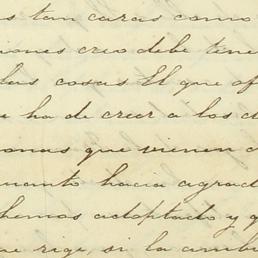 s tan caras como
iones creo debe tene
las cosas El que of
e ha de creer á los d
onas que vienen
uanto hacia agrad
hemos adoptado y q
ue rige, si la ambi